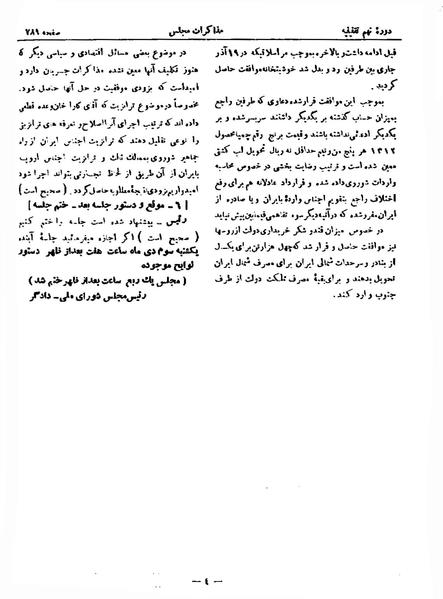 دورهٔ نهم تقنینیه
مذاکرات مجلس
صفحه ۲۸۹
قبل ادامه داشت و بالاخره بموجب مراسلاتیکه در ۱۹ آذر
جاری بین طرفین رد و بدل شد خوشبختانه موافقت حاصل
گردید.
بموجب این موافقت قرار شد دعاوی که طرفین راجع
بمیزان حساب گذشته بر یکدیگر داشتند سربسر شده و بر
یکدیگر ادعائی نداشته باشند و قیمت برنج رقم چمپا محصول
۱۳۱۲ هر پنج من و نیم حداقل نه ریال تحویل لب کشتی
معین شده است و ترتیب رضایت بخشی در خصوص محاسبه
واردات شوروی داده شده و قرارداد عادلانه هم برای رفع
اختلاف راجع بتقویم اجناس وارده بایران و یا صادره از
ایران مقرر شده که در آتیه دیگر سوء تفاهمی فیمابین پیش نیاید
در خصوص میزان قند و شکر خریداری دولت از روسها
نیز موافقت حاصل و قرار شد که چهل هزار تن برای یکسال
از بنادر و سرحدات شمالی ایران برای مصرف شمال ایران
تحویل بدهند و برای بقیهٔ مصرف مملکت دولت از طرف
جنوب وارد کند.
در موضوع بعضی مسائل اقتصادی و سیاسی دیگر که
هنوز تکلیف آنها معین نشده مذاکرات جریان دارد و
امید است که بزودی موفقیت در حل آنها حاصل شود.
مخصوصاً در موضوع ترانزیت که آقای کاراخان وعده قطعی
داده اند که ترتیب اجرای آنرا اصلاح و تعرفه های ترانزیتی
را نوعی تقلیل دهند که ترانزیت اجناس ایران از راه
جماهیر شوروی بممالک ثالث و ترانزیت اجناس اروپ
بایران از آن طریق از لحاظ تجارتی بتواند اجرا شود
امیدواریم بزودی نتیجهٔ مطلوبه حاصل گردد. (صحیح است)
[ ۶ - موقع و دستور جلسه بعد - ختم جلسه ]
رئیس - پیشنهاد شده است جلسه را ختم کنیم
( صحیح است ) اگر اجازه میفرمائید جلسهٔ آینده
یکشنبه سوم دی ماه ساعت هفت بعد از ظهر دستور
لوایح موجوده
( مجلس یک ربع ساعت بعد از ظهر ختم شد )
رئیس مجلس شورای ملی - دادگر
- ۴ -